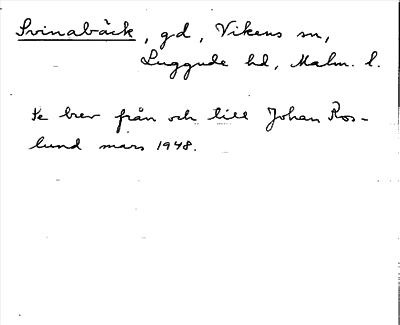 Svinabäck, gd, Vikens sn,
Luggude hd, Malm. l.
Se brev från och till Johan Ros-
lund mars 1948.